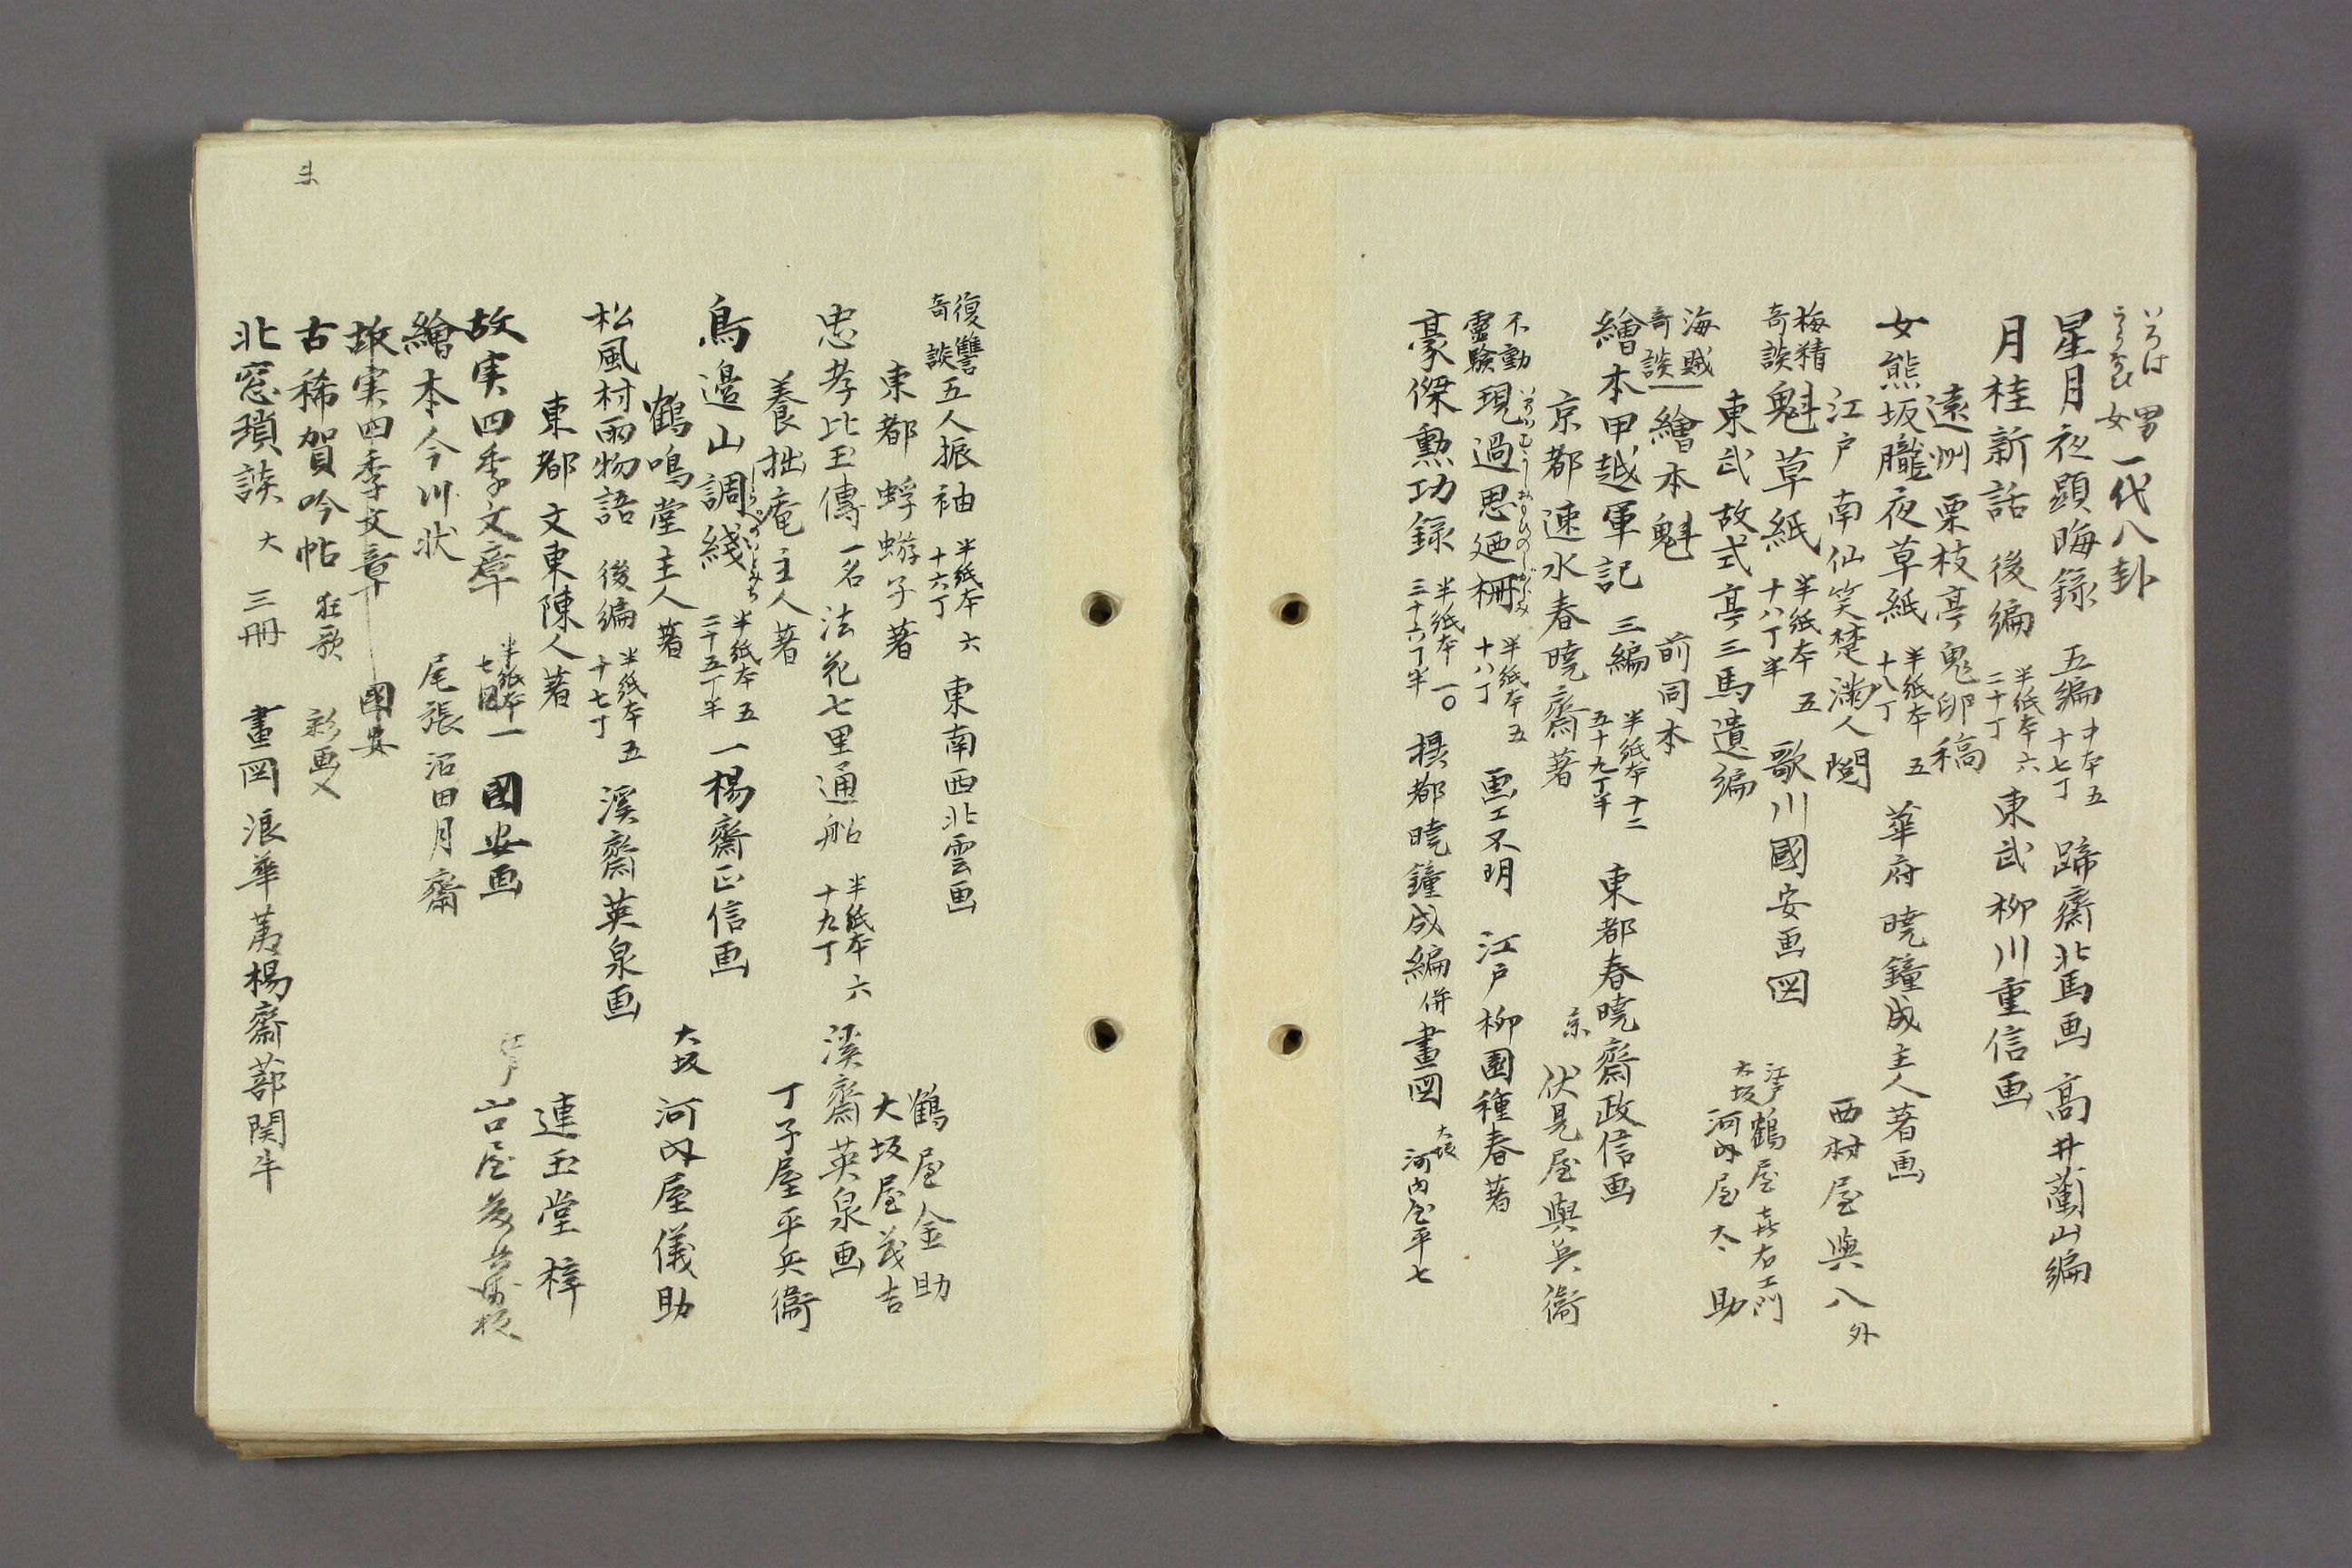 いろは うらなひ 男女 一代八卦
星月夜顕晦録 五編 中本五 十七丁 蹄齋北馬画 高井蘭山編
月桂新話 後編 半紙本六 二十丁 東武柳川重信画
遠州栗枝亭鬼卵稿
女熊坂朧夜草紙 半紙本五 十八丁 華府 暁鐘成主人著画
江戸 南仙笑楚滿人閲 西村屋與八外
梅精奇談 魁草紙 半紙本五 十八丁半 歌川國安画図
江戸 鶴屋喜右エ門
東武 故式亭三馬遺編 大坂 河内屋太助
海賊奇談 繪本魁 前同本
繪本甲越軍記 三編 半紙本十二 五十九丁半 東都春暁齋政信画
京都速水春暁齋著 京 伏見屋與兵衞
不動霊験 現過思廼柵 半紙本五 十八丁 画工不明 江戸柳園種春著
豪傑勲功録 半紙本一〇 三十六丁半 摂都暁鐘成編併畫図 大坂 河内屋平七
復讐奇談 五人振袖 半紙本六 十六丁 東南西北雲画
東都 蜉蝣子著 鶴屋金助
大坂屋茂吉
忠孝比玉傳 一名 法花七里通船 半紙本六 十九丁 溪齋英泉画
養拙庵主人著 丁子屋平兵衞
鳥邉山調綫 しらべのいとみち 半紙本五 二十五丁半 一楊齋正信画
鶴鳴堂主人著 大坂 河内屋儀助
松風村雨物語 後編 半紙本五 十七丁 溪齋英泉画
東都 文東陳人著 連玉堂梓
故実四季文章 半紙本一 七図 國安画 江戸 山口屋藤兵衛板
繪本今川状 尾張 沼田月齋
故実四季文章 國安
古稀賀吟帖 狂歌 彩画入
北窓瑣談 大 三冊 畫図 浪華 蒿楊齋蔀関牛